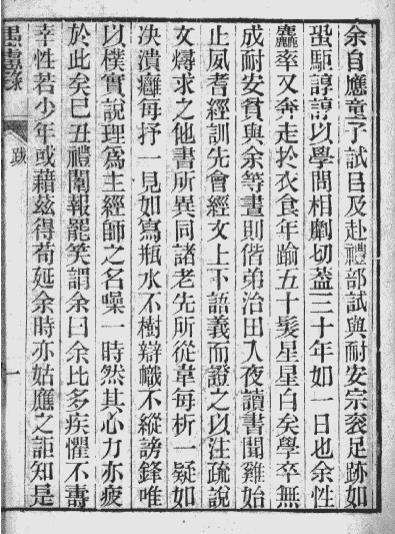 余自應童子試㠯及赴禮部試與耐安宗袞足跡如
蛩駏諄諄以學問相劘切葢三十年如一日也余性
麤率又奔走於衣食年踰五十髮星星白矣學卒無
成耐安貧與余等晝則偕弟治田入夜讀書聞雞始
止夙耆經訓先會經文上下語義而證之以注疏說
文燖求之他書所異同諸老先所從韋每析一疑如
決潰癰每抒一見如寫瓶水不樹辯幟不縱謗鋒唯
以樸實說理爲主經師之名噪一時然其心力亦疲
於此矣巳丑禮闈報罷笑謂余曰余比多疾懼不壽
幸性若少年或藉茲得苟延余時亦姑應之詎知是
愚書錄
跋
一